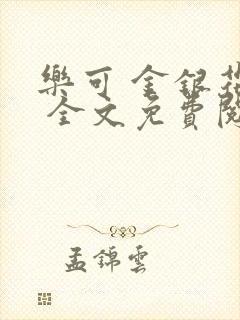 樂可 金銀花
全文免費閱
孟錦雲